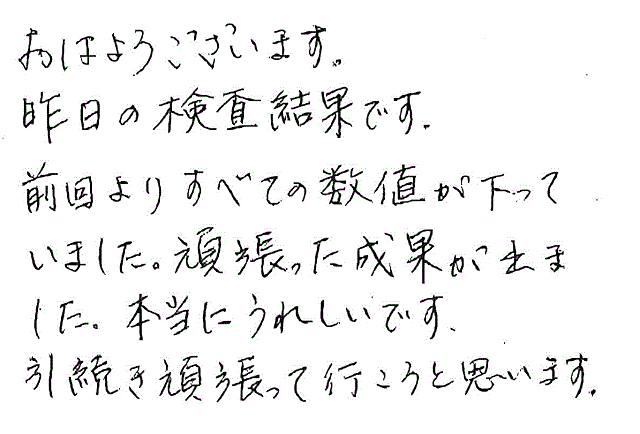 おはようございます。
昨日の検査結果です。
前回よりすべての数値が下って
いました。頑張った成果が出ま
した。本当にうれしいです。
引続き頑張って行こうと思います。